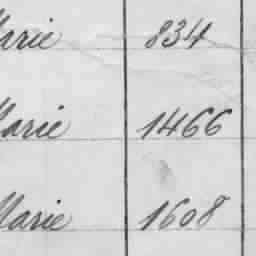 Marie 834
Marie 1466
Marie 1608